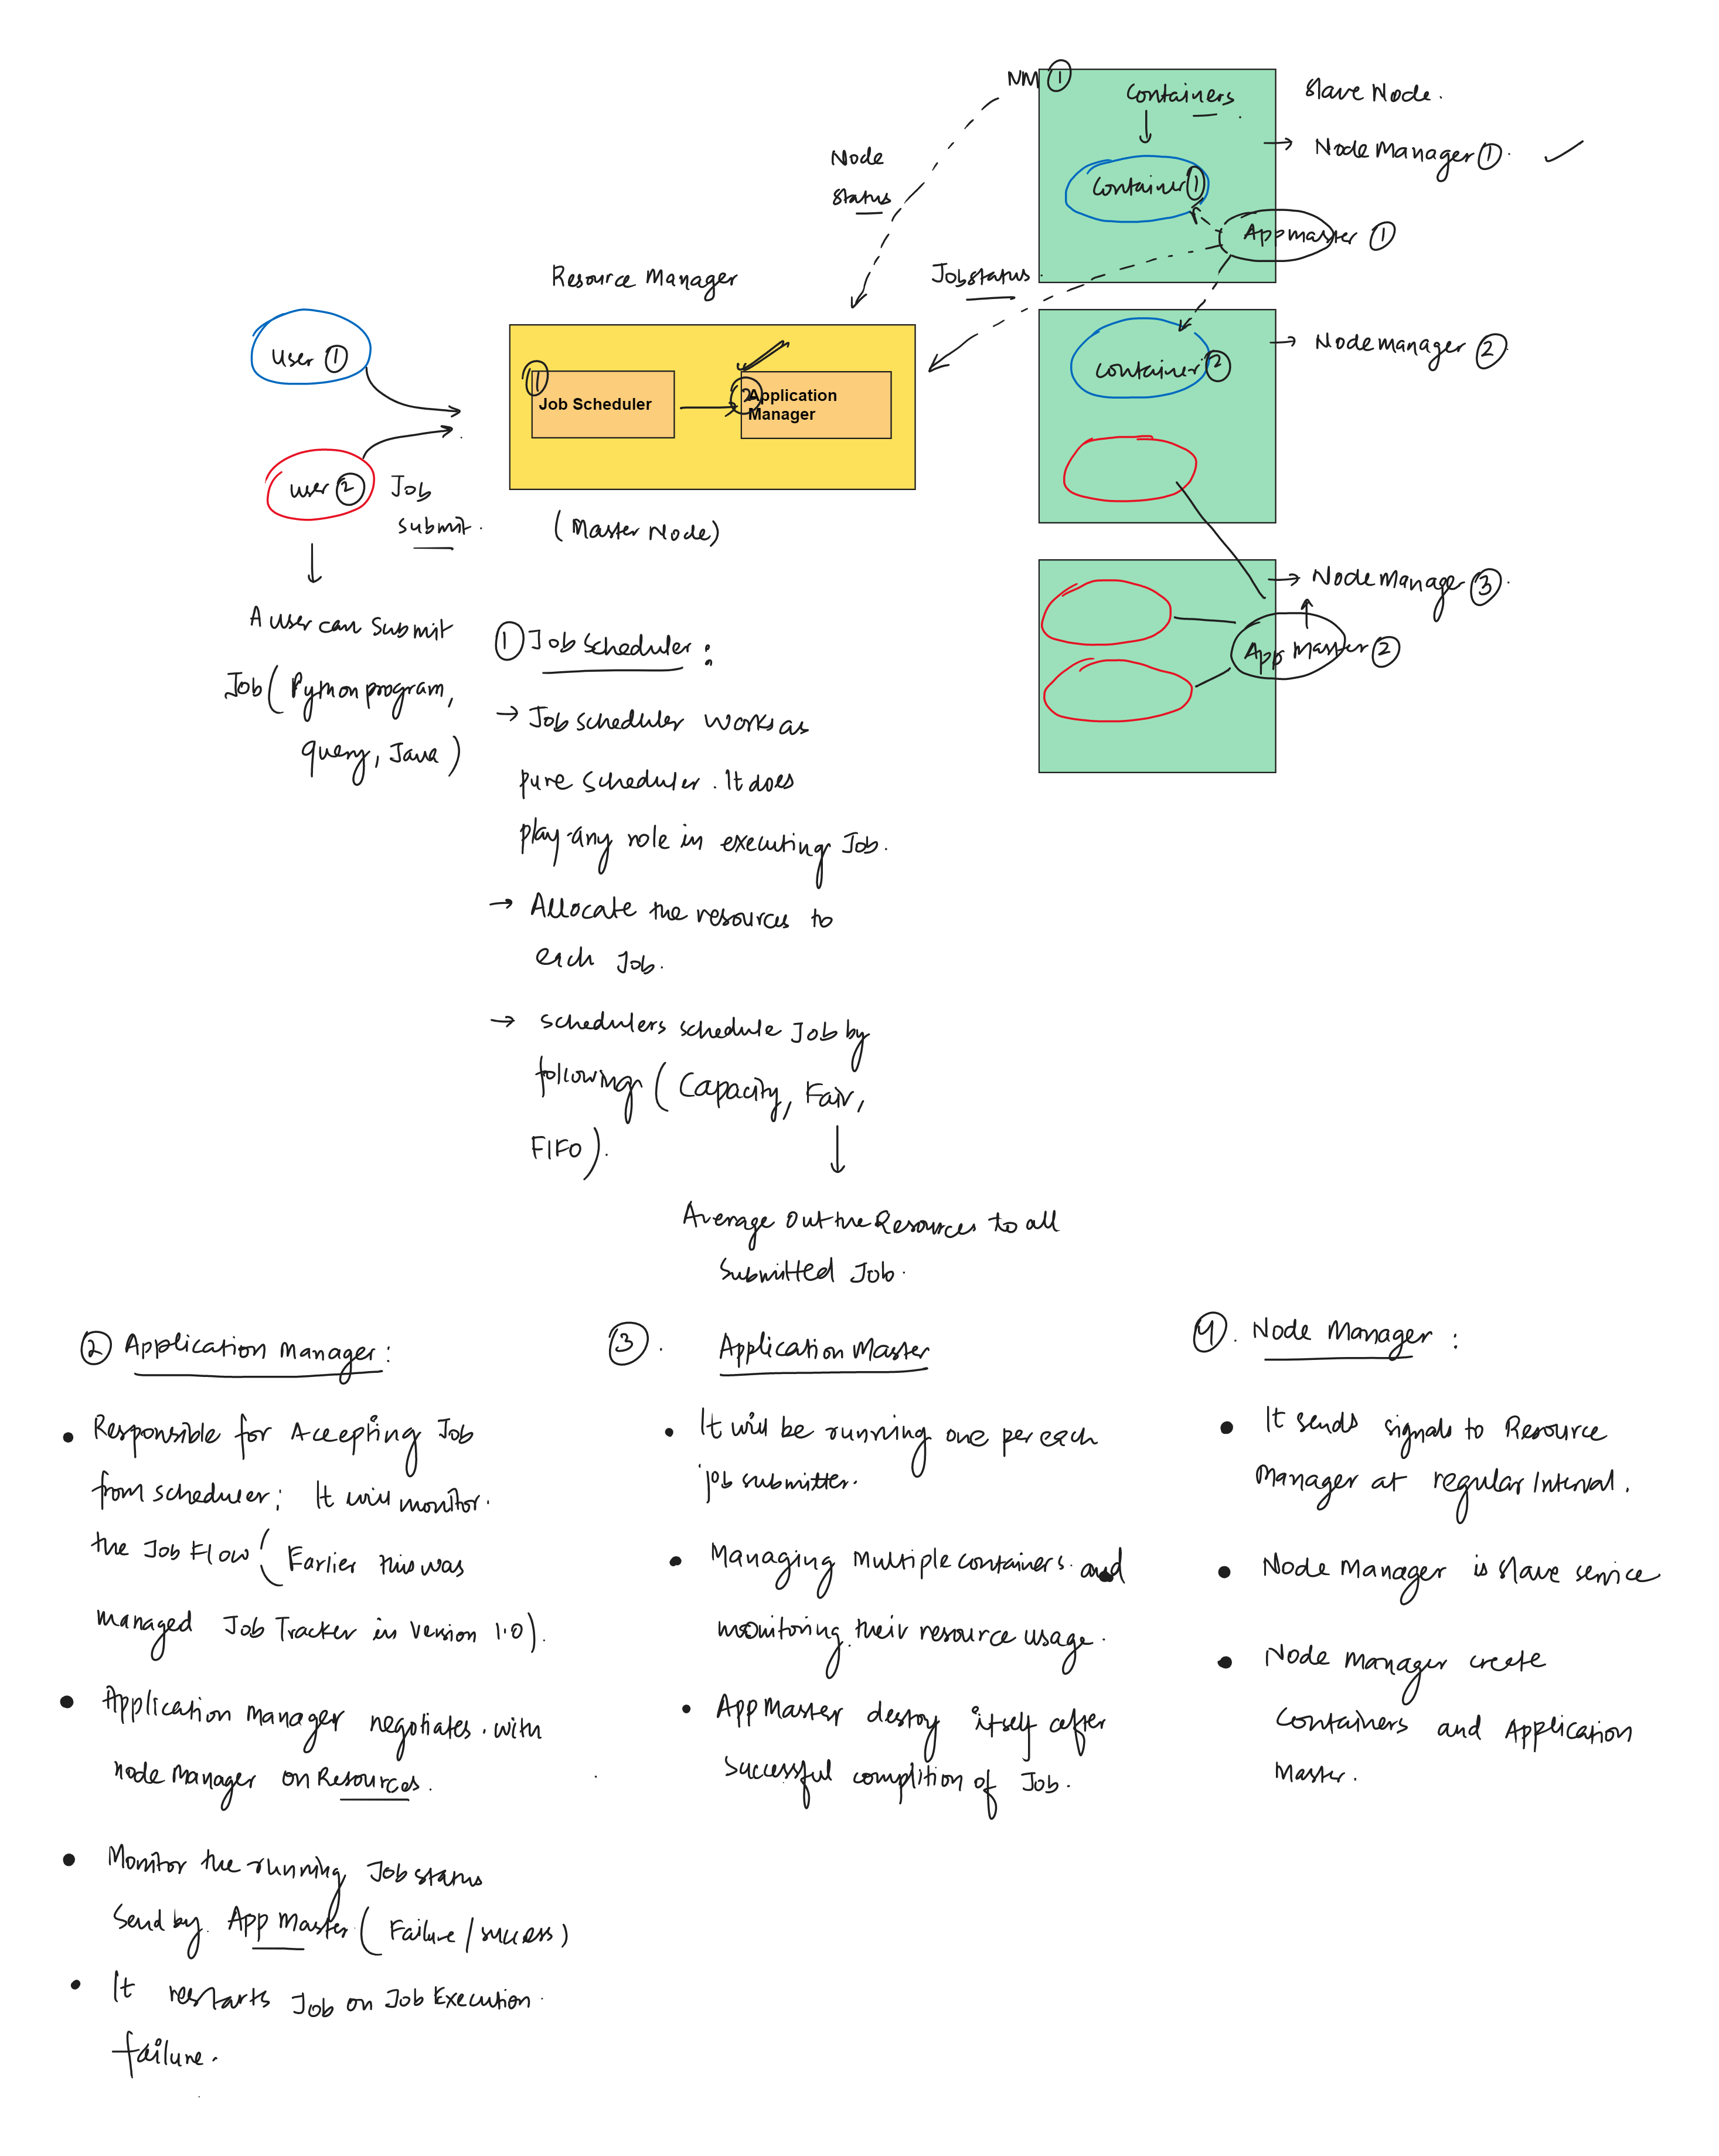 NM ①
Containers
Slave Node.
Node Manager ①.
Container ①
Node
Status
Appmaster ①
Job status
Resource Manager
User ①
Container ②
Node manager ②
① Job Scheduler
② Application
Manager
user ②
Job
submit.
(Master Node)
Node Manager ③.
App Master ②
A user can submit
Job (Python program,
query, Java)
① Job Scheduler:
→ Job scheduler works as
pure scheduler. It does
play any role in executing Job.
→ Allocate the resources to
each Job.
→ schedulers schedule Job by
following (Capacity, Fair,
FIFO).
Average Out the Resources to all
submitted Job.
② Application Manager:
• Responsible for Accepting Job
from scheduler; It will monitor
the Job Flow (Earlier this was
managed Job Tracker in Version 1.0).
• Application manager negotiates with
node Manager on Resources.
• Monitor the running Job status
Send by App Master (Failure/success)
• It restarts Job on Job Execution
failure.
③. Application Master
• It will be running one per each
job submitter.
• Managing Multiple containers and
monitoring their resource usage.
• App Master destoy itself after
successful complition of Job.
4. Node Manager:
• It sends signals to Resource
Manager at regular Interval.
• Node Manager is slave service
• Node manager create
Containers and Application
Master.